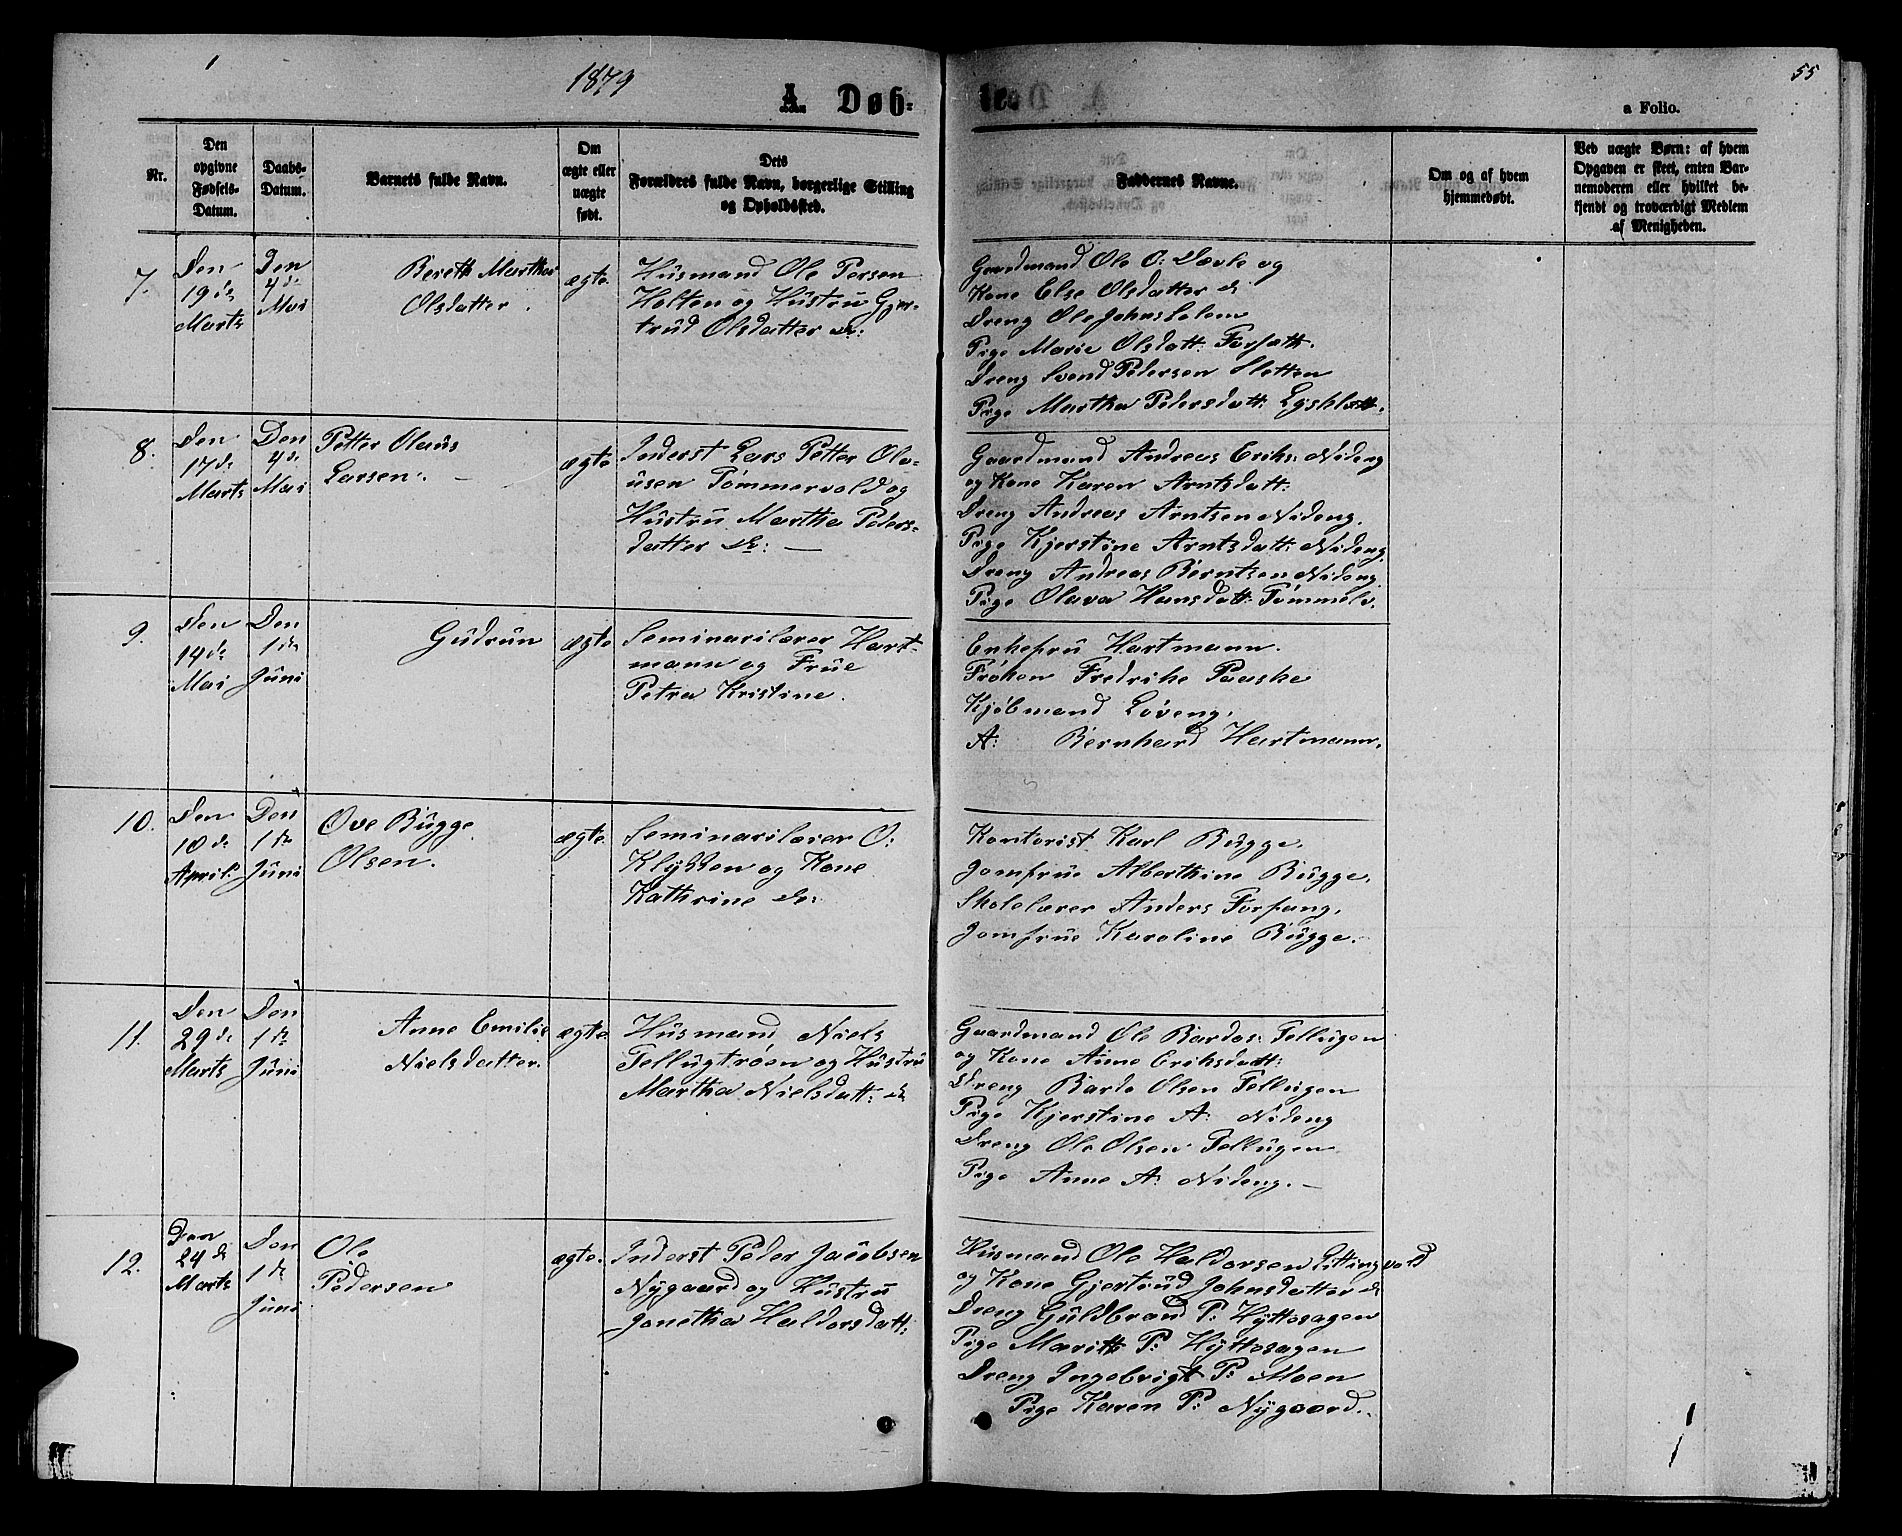 1879
55
A. Døb-
a Folio.
Nr.
Den opgivne Fødsels-Datum.
Daabs-Datum.
Barnets fulde Navn.
Om ægte eller uægte født.
Dets Forældres fulde Navn, borgerlige Stilling og Opholdssted.
Faddernes Navne.
Om og af hvem hjemmedøbt.
Ved uægte Børn: af hvem Opgaven er skeet, enten Barnemoderen eller hvilket bekjendt og troværdigt Medlem af Menigheden.
7.
Den 19de Marts
Den 4de Mai
Bereth Martha
Olsdatter.
ægte
Husmand Ole Persen
Holten og Hustru Gjer-
trud Olsdatter do:
Gaardmand Ole O: Dævle og
Kone Else Olsdatter do.
Dreng Ole Johns
Pige Marie Olsdatt:
Dreng Svend Pedersen Sletten
Pige Martha Pedersdatt:
8.
Den 17de Marts
Den 4de Mai
Petter Olaus
Larsen.
ægte
Inderst Lars Petter Ola-
usen Tømmervold og
Hustru Martha Peders-
datter do: —
Gaardmand Andreas Eriks: Nideng
og Kone Karen Arntsdatt:
Dreng Andreas Arntsen Nideng.
Pige Kjerstine Arntsdatt: Nideng.
Dreng Andreas Berntsen Nideng.
Pige Olava Hansdatt:
9.
Den 14de Mai
Den 1de Juni
Gudrun
ægte
Seminarilærer Hart-
mann og Frue
Petra Kristine.
Enkefru Hartmann.
Frøken Fredrike Paaske
Kjøbmand Løveng.
A: Bernhard Hartmann.
10.
Den 10de April
Den 1de Juni
Ove Bugge
Olsen.
ægte.
Seminarilærer O:
og Kone
Kathrine do:
Kontorist Karl Bugge.
Jomfrue Alberthine Bugge.
Skolelærer Anders Forfang.
Jomfrue Karoline Bugge.
11.
Den 29de Marts
Den 1de Juni
Anne Emilie
Nielsdatter.
ægte.
Husmand Niels
Tellugtrøen og Hustru
Martha Nielsdatt: do
Gaardmand Ole Bardos: Tellugen
og Kone Anne Eriksdatt:
Dreng Bardo Olsen Tellugen
Pige Kjerstine A: Nideng
Dreng Ole Olsen Tellugen
Pige Anne A: Nideng. —
12.
Den 24de Marts
Den 1de Juni
Ole
Pedersen
ægte.
Inderst Peder Jacobsen
Nygaard og Hustru
Jonetha Haldorsdatt:
Husmand Ole Haldorsen
og Kone Gjertrud Johnsdatter do
Dreng Guldbrand P: Hyttesagen
Pige Marith P: Hyttesagen
Dreng Ingebrigt P: Moen
Pige Karen P: Nygaard.